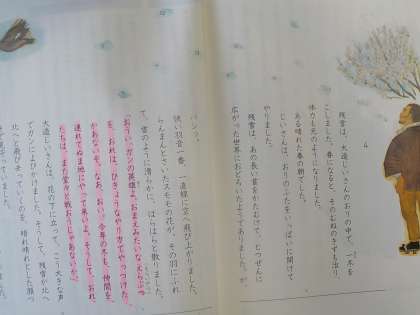 4
残雪は、大造じいさんのおりの中で、一冬を
こしました。春になると、そのむねのきずも治り、
体力も元のようになりました。
ある晴れた春の朝でした。
じいさんは、おりのふたをいっぱいに開けて
やりました。
残雪は、あの長い首をかたむけて、とつぜんに
広がった世界におどろいたようでありました。が、
バシッ。
快い羽音一番、一直線に空へ飛び上がりました。
らんまんとさいたスモモの花が、その羽にふれ
て、雪のように清らかに、はらはらと散りました。
「おうい、ガンの英雄よ。おまえみたいなえらぶつ
を、おれは、ひきょうなやり方でやっつけたか
あないぞ。なあ、おい。今年の冬も、仲間を
連れてぬま地にやって来いよ。そうして、おれ
たちは、また堂々と戦おうじゃあないか。」
大造じいさんは、花の下に立って、こう大きな声
でガンによびかけました。そうして、残雪が北へ
北へと飛び去っていくのを、晴れ晴れとした顔つ
きで見守っていました。